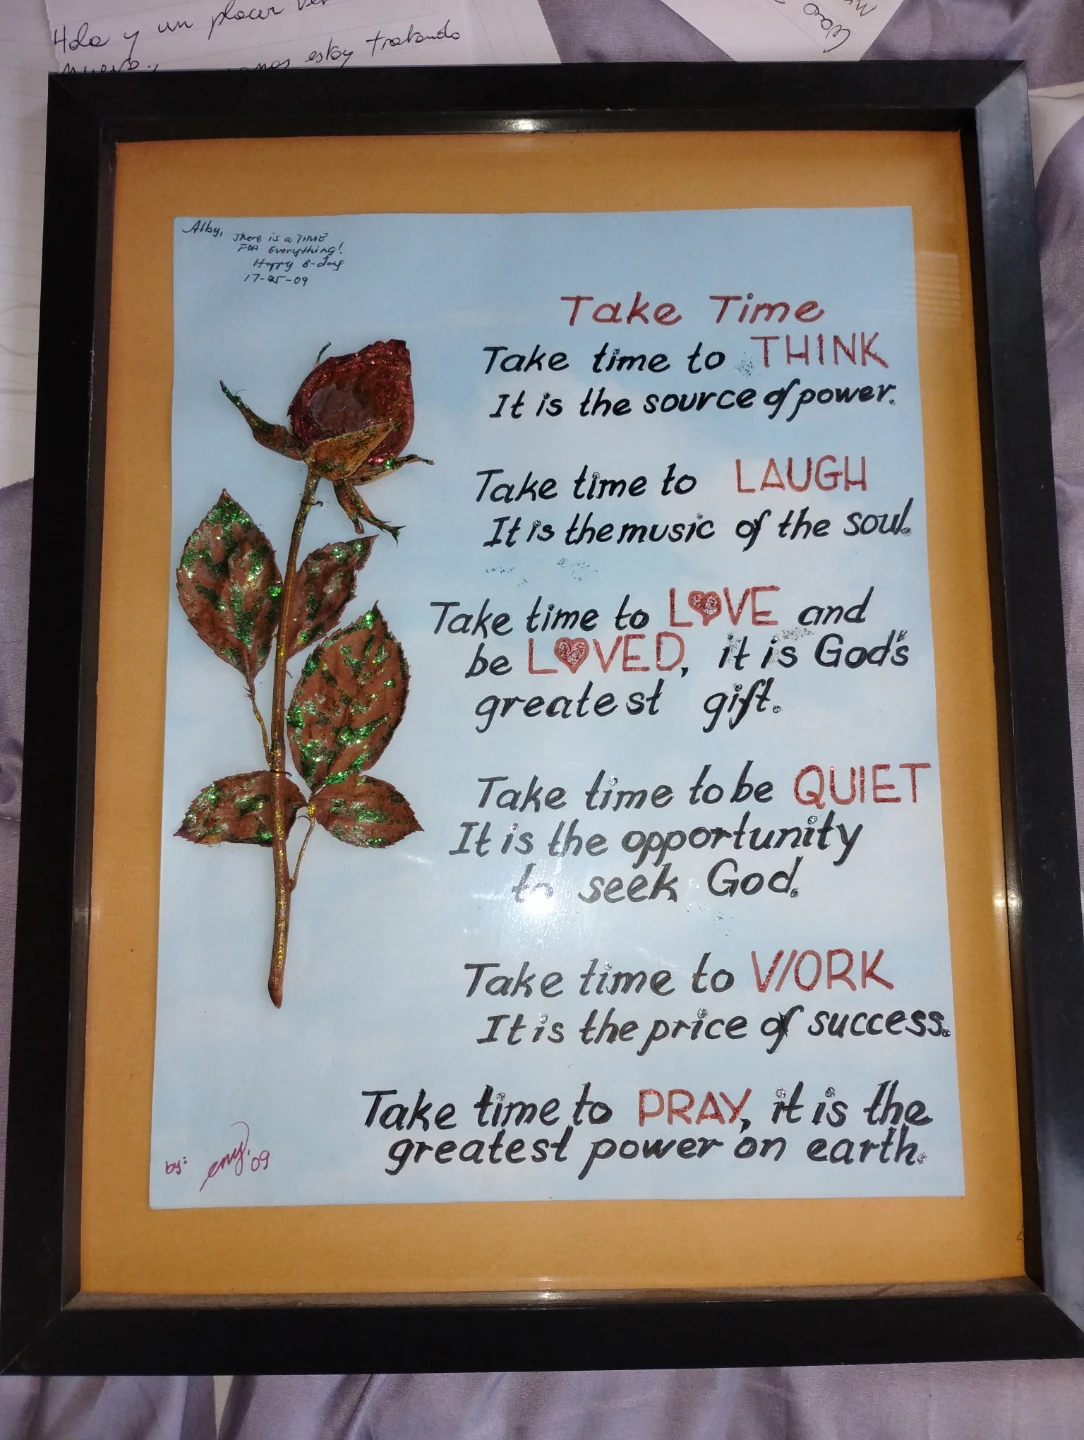 Hola y un placer
estoy tratando
Alby, There is a TIME
FOR Everything!
Happy B-day
17-05-09
Take Time
Take time to THINK
It is the source of power.
Take time to LAUGH
It is the music of the soul.
Take time to LOVE and
be LOVED, it is God's
greatest gift.
Take time to be QUIET
It is the opportunity
to seek God.
Take time to WORK
It is the price of success.
Take time to PRAY, it is the
greatest power on earth.
by: eny.'09